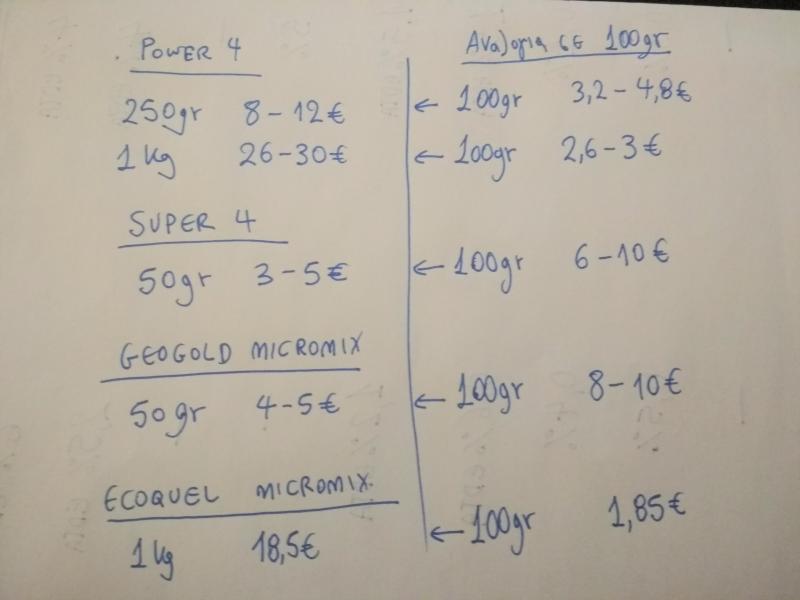 POWER 4
250gr 8-12€
1kg 26-30€
SUPER 4
50gr 3-5€
GEOGOLD MICROMIX
50gr 4-5€
ECOQUEL MICROMIX
1kg 18,5€
Αναλογια σε 100gr
← 100gr 3,2-4,8€
← 100gr 2,6-3€
← 100gr 6-10€
← 100gr 8-10€
← 100gr 1,85€